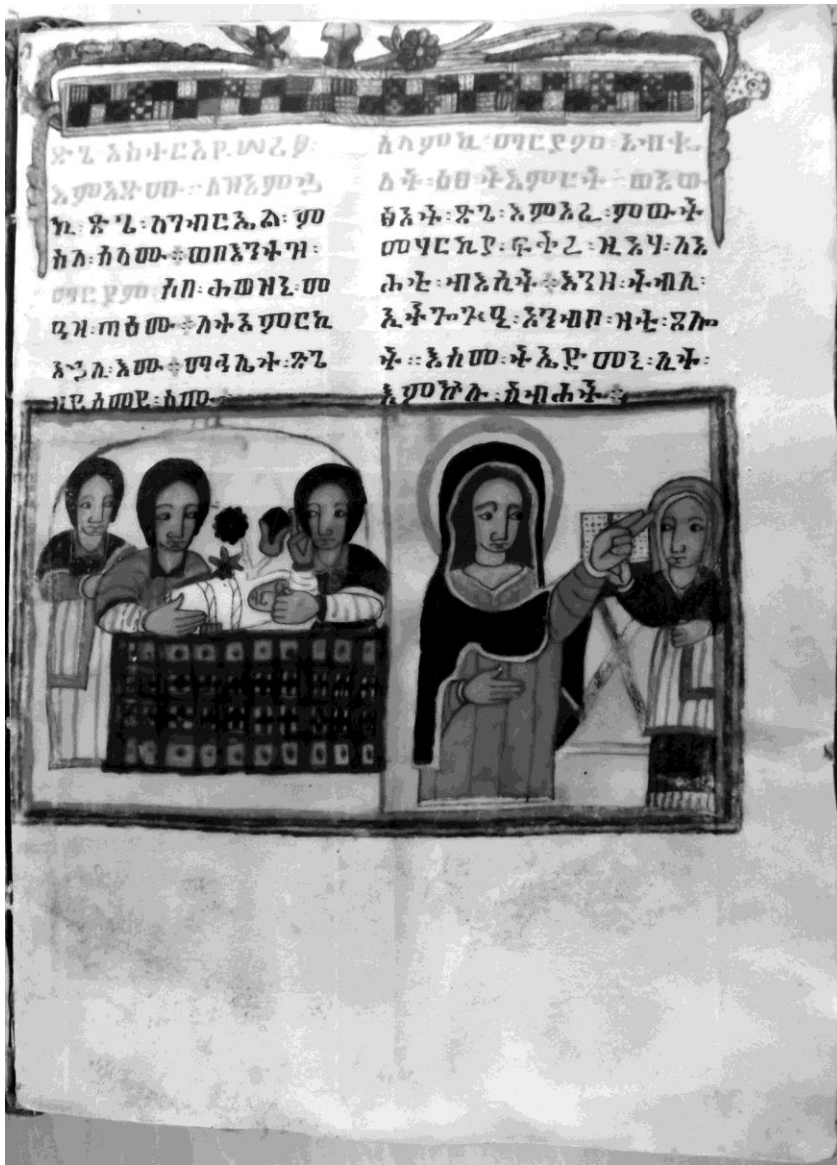 ጽጌ አስተርአየ ሠሪፀ፡
እምአጽሙ፡ ለዘእምኀ
ኪ፡ ጽጌ፡ ለገብርኤል፡ ም
ስለ፡ ሰላሙ፡፡ ወበእንተዝ፡
ማርያም፡ ሶበ፡ ሐወዝኒ፡ መ
ዓዛ፡ ጣዕሙ፡ ለተአምርኪ
እኁሊ፡ እሙ፡፡ ማኅሌተ፡ ጽጌ
ዘይሰመይ፡ ስሙ፡፡
ሰላምኪ፡ ማርያም፡ እብቊ
ልት፡ ዕፀ፡ ትእምርት፡ ወእው
ፅእት፡ ጽጌ፡ እምአፈ፡ ምውት
መሃርኪያ፡ ፍጥረ፡ ዚአሃ፡ ለአ
ሐቲ፡ ብእሲት፡፡ እንዘ፡ ትብሊ፡
ኢትጐጕዒ፡ እንብበ፡ ዛቲ፡ ጸሎ
ት፡፡ እስመ፡ ትኤድመኒ፡ ሊተ፡
እምኵሉ፡ ስብሐት፡፡